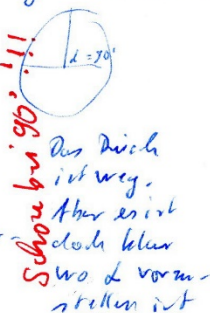 α = 90°
Schon bei 90°!!!
Das Dreieck
ist weg.
Aber es ist
doch klar
wo α vorzu-
stellen ist